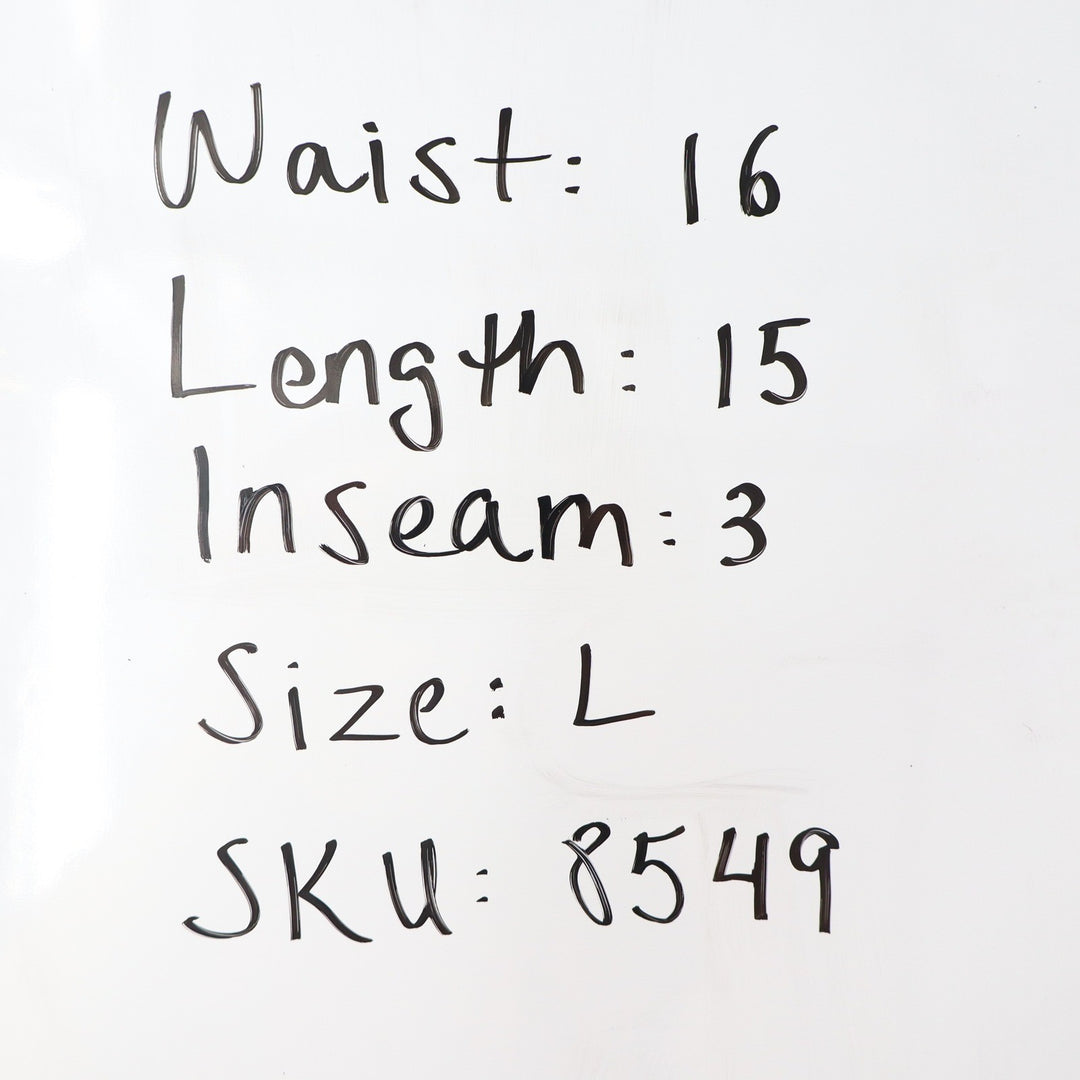 Waist: 16
Length: 15
Inseam: 3
Size: L
SKU: 8549